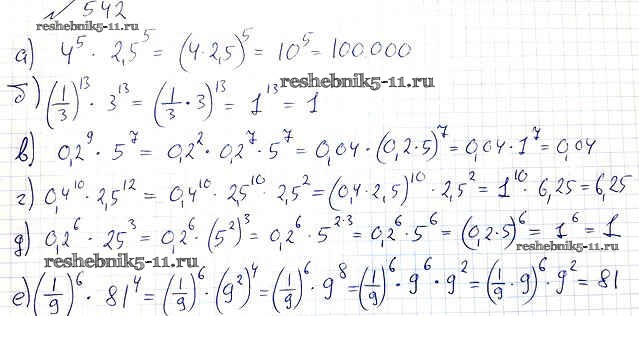 № 542
reshebnik5-11.ru
а) 4⁵ · 2,5⁵ = (4·2,5)⁵ = 10⁵ = 100.000
reshebnik5-11.ru
б) (1/3)¹³ · 3¹³ = (1/3 · 3)¹³ = 1¹³ = 1
в) 0,2⁹ · 5⁷ = 0,2² · 0,2⁷ · 5⁷ = 0,04 · (0,2·5)⁷ = 0,04 · 1⁷ = 0,04
г) 0,4¹⁰ · 2,5¹² = 0,4¹⁰ · 2,5¹⁰ · 2,5² = (0,4·2,5)¹⁰ · 2,5² = 1¹⁰ · 6,25 = 6,25
д) 0,2⁶ · 25³ = 0,2⁶ · (5²)³ = 0,2⁶ · 5²˙³ = 0,2⁶ · 5⁶ = (0,2·5)⁶ = 1⁶ = 1
reshebnik5-11.ru
reshebnik5-11.ru
е) (1/9)⁶ · 81⁴ = (1/9)⁶ · (9²)⁴ = (1/9)⁶ · 9⁸ = (1/9)⁶ · 9⁶ · 9² = (1/9 · 9)⁶ · 9² = 81